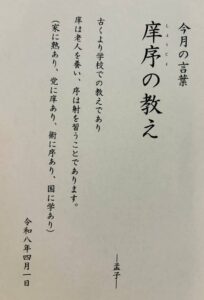 今月の言葉
しょうじょ
庠序の教え
―孟子―
古くより学校での教えであり
庠は老人を養い、序は射を習うことであります。
(家に塾あり、党に庠あり、術に序あり、国に学あり)
令和八年四月一日